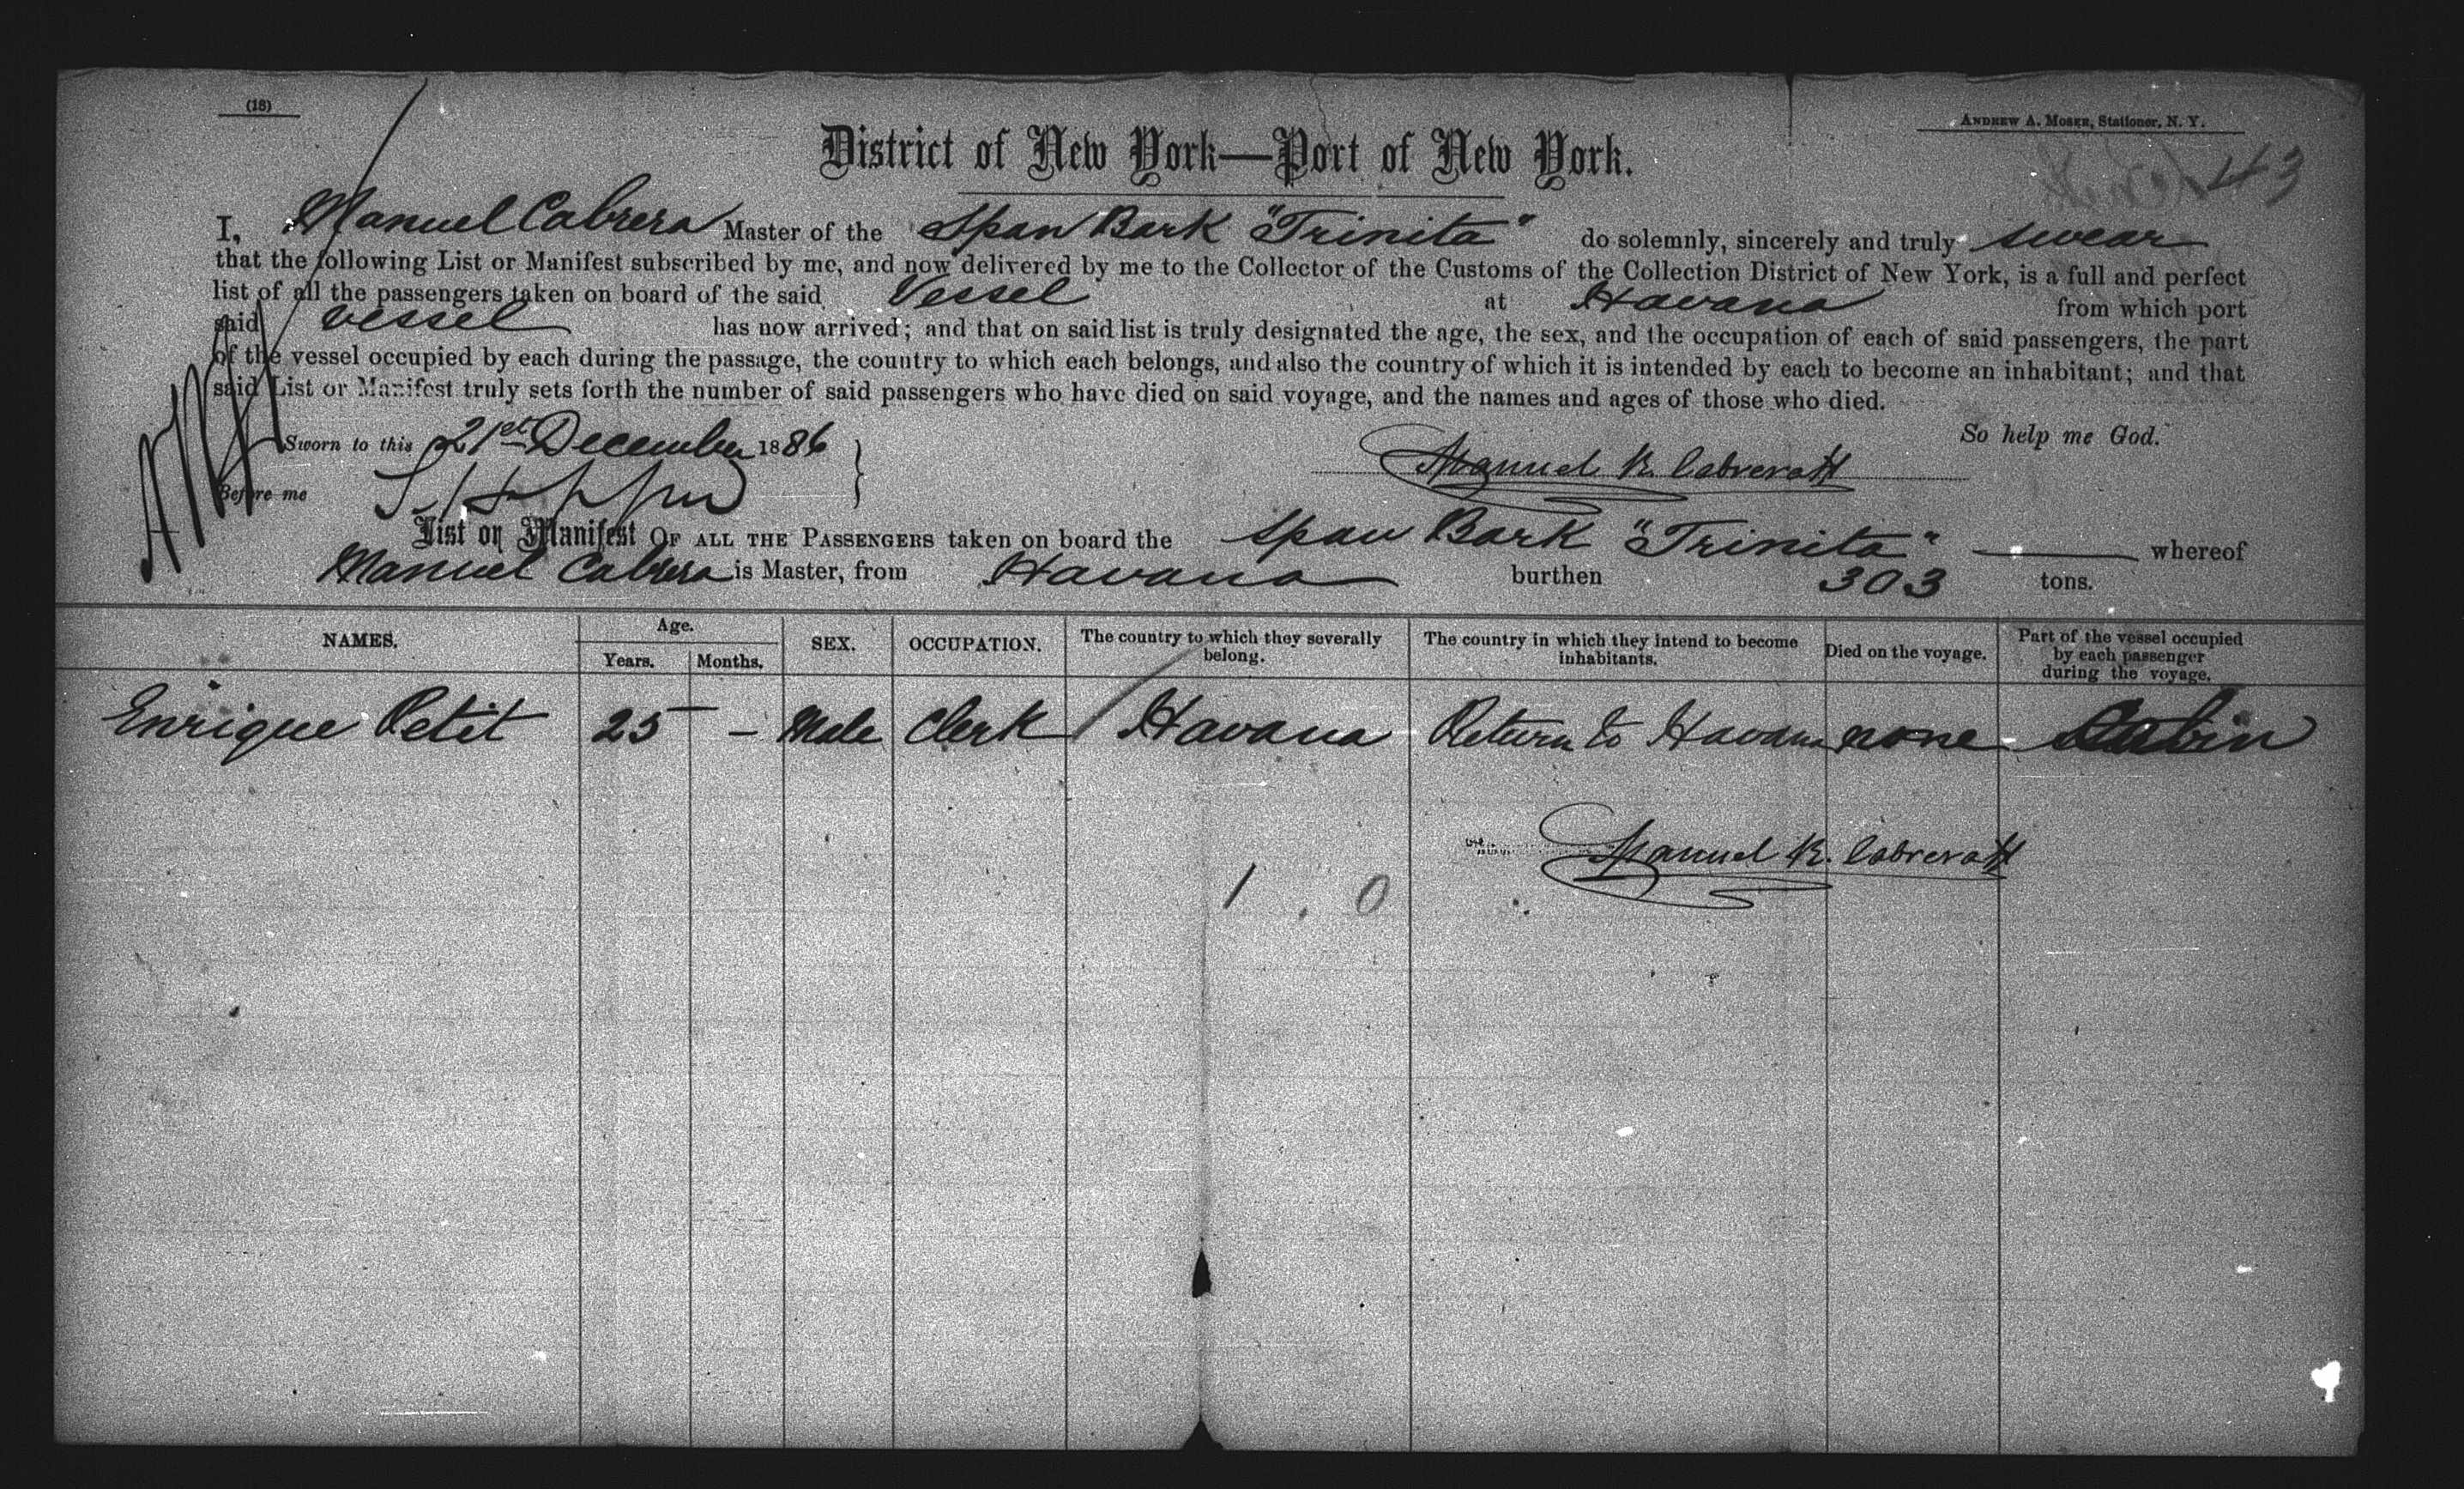 (18)
ANDREW A. MOSER, Stationer, N. Y.
43
District of New York—Port of New York.
I, Manuel Cabrera Master of the Span Bark "Trinita" do solemnly, sincerely and truly swear
that the following List or Manifest subscribed by me, and now delivered by me to the Collector of the Customs of the Collection District of New York, is a full and perfect
list of all the passengers taken on board of the said Vessel at Havana from which port
said vessel has now arrived; and that on said list is truly designated the age, the sex, and the occupation of each of said passengers, the part
of the vessel occupied by each during the passage, the country to which each belongs, and also the country of which it is intended by each to become an inhabitant; and that
said List or Manifest truly sets forth the number of said passengers who have died on said voyage, and the names and ages of those who died.
So help me God.
Sworn to this 21st December 1886
Manuel R. Cabrera
Before me
List or Manifest OF ALL THE PASSENGERS taken on board the Span Bark "Trinita" whereof
Manuel Cabrera is Master, from Havana burthen 303 tons.
NAMES. Age. Years. Months. SEX. OCCUPATION. The country to which they severally belong. The country in which they intend to become inhabitants. Died on the voyage. Part of the vessel occupied by each passenger during the voyage.
Enrique Petit 25 - Male Clerk Havana Return to Havana none Cabin
Manuel R. Cabrera
1 . 0